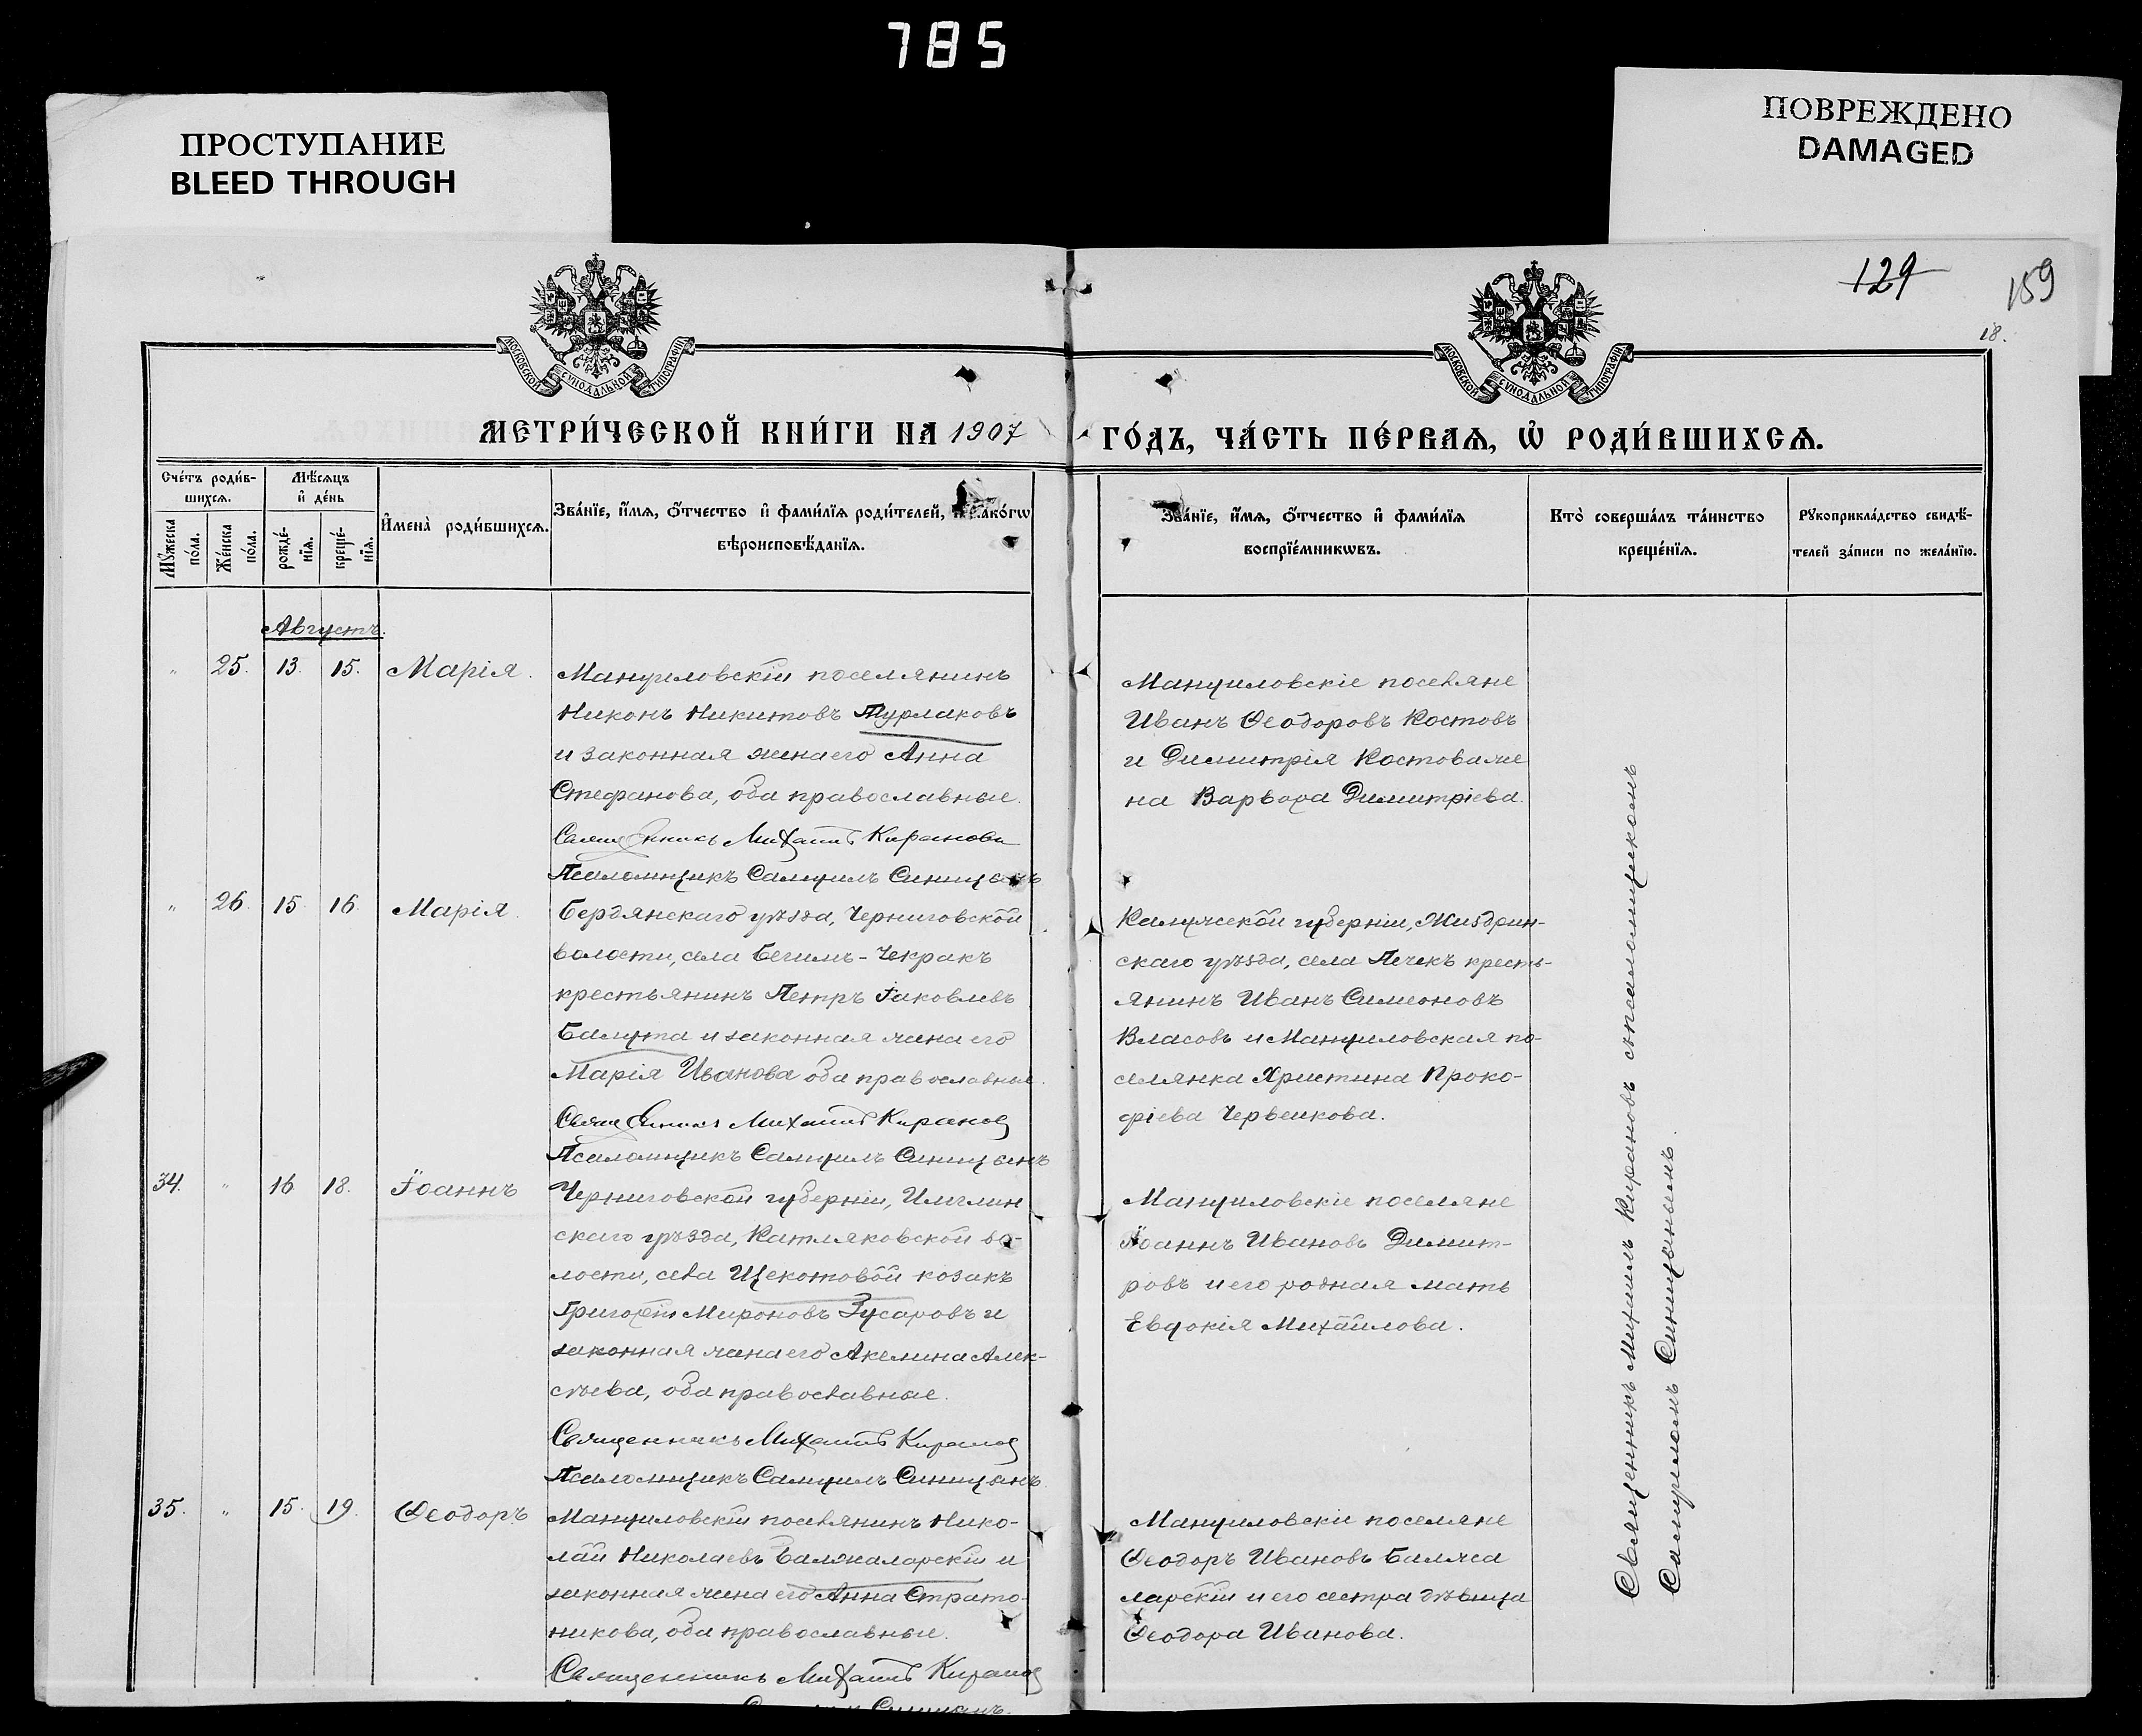 785
ПРОСТУПАНИЕ
BLEED THROUGH
ПОВРЕЖДЕНО
DAMAGED
129
159
18.
МОСКОВСКОЙ СѴНОДАЛЬНОЙ ТИПОГРАФІИ
МОСКОВСКОЙ СѴНОДАЛЬНОЙ ТИПОГРАФІИ
МЕТРИ́ЧЕСКОЙ КНИ́ГИ НА 1907 ГО́ДЪ, ЧА́СТЬ ПЕ́РВАѦ, Ѡ҆ РОДИ́ВШИХСѦ.
Сче́тъ роди́в-
шихсѧ.
Мꙋ́жеска по́ла.
Же́нска по́ла.
Мѣ́сѧцъ
и҆ де́нь
рожде́-
нїѧ.
креще́-
нїѧ.
И҆мена̀ роди́вшихсѧ.
Зва́нїе, и҆́мѧ, ѻ҆́тчество и҆ фами́лїѧ роди́телей, и҆ како́гѡ
вѣроисповѣ́данїѧ.
Зва́нїе, и҆́мѧ, ѻ҆́тчество и҆ фами́лїѧ
воспрїе́мникѡвъ.
Кто̀ соверша́лъ та́инство
креще́нїѧ.
Рꙋкоприкла́дство свидѣ́-
телей за́писи по жела́нїю.
Августъ.
" 25. 13. 15. Марія.
Мануиловскій поселянинъ
Никонъ Никитовъ Турлаковъ
и законная жена его Анна
Стефанова, оба православные.
Священникъ Михаилъ Кирановъ
Псаломщикъ Самуилъ Синицынъ
Мануиловскіе поселяне
Иванъ Ѳеодоровъ Костовъ
и Димитрія Костова же
на Варвара Димитріева.
" 26. 15 16. Марія.
Бердянскаго уѣзда, Черниговской
волости, села Бегимъ-Чекракъ
крестьянинъ Петръ Іаковлевъ
Балута и законная жена его
Марія Иванова оба православные.
Священникъ Михаилъ Кирановъ
Псаломщикъ Самуилъ Синицынъ
Калужской губерніи, Жиздрин-
скаго уѣзда, села Печекъ кресть-
янинъ Иванъ Симеоновъ
Власовъ и Мануиловская по-
селянка Христина Проко-
фіева Червенкова.
34. " 16 18. Іоаннъ
Черниговской губерніи, Имглин
скаго уѣзда, Катляковской во-
лости, села Щекотовой козакъ
Григорій Мироновъ Зусаровъ и
законная жена его Акелина Алек-
сѣева, оба православные.
Священникъ Михаилъ Кирановъ
Псаломщикъ Самуилъ Синицынъ
Мануиловскіе поселяне
Іоаннъ Ивановъ Димит-
ровъ и его родная мать
Евдокія Михайлова.
35. " 15. 19. Ѳеодоръ
Мануиловскій поселянинъ Нико-
лай Николаевъ Балжаларскій и
законная жена его Анна Страто-
никова, оба православные.
Священникъ Михаилъ Кирановъ
Мануиловскіе поселяне
Ѳеодоръ Ивановъ Балжа
ларскій и его сестра дѣвица
Ѳеодора Иванова.
Священникъ Михаилъ Кирановъ съ псаломщикомъ
Самуиломъ Синицынымъ.